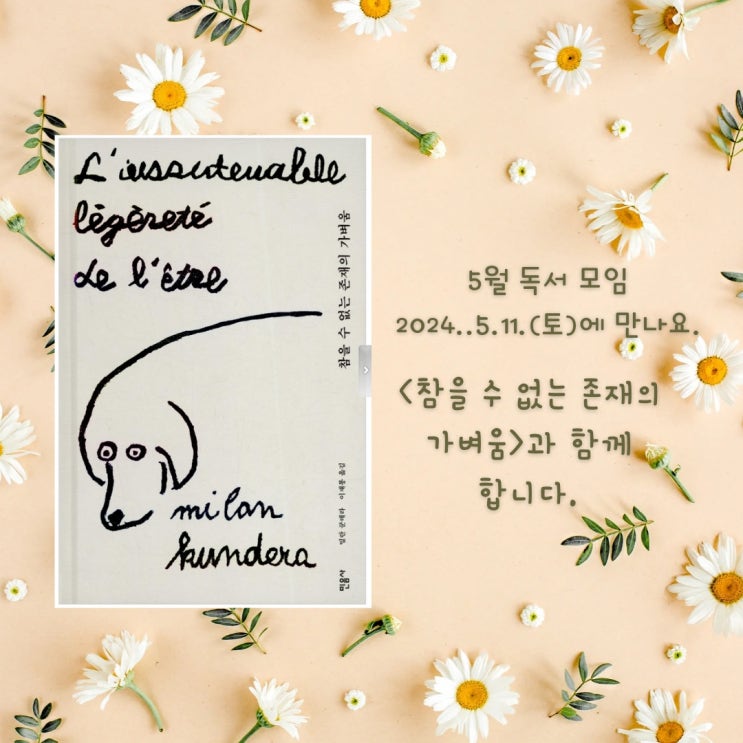 L'insoutenable
légèreté
de l'être
참을 수 없는 존재의 가벼움
milan
kundera
밀란 쿤데라 이재룡 옮김
민음사
5월 독서 모임
2024..5.11.(토)에 만나요.
<참을 수 없는 존재의
가벼움>과 함께
합니다.